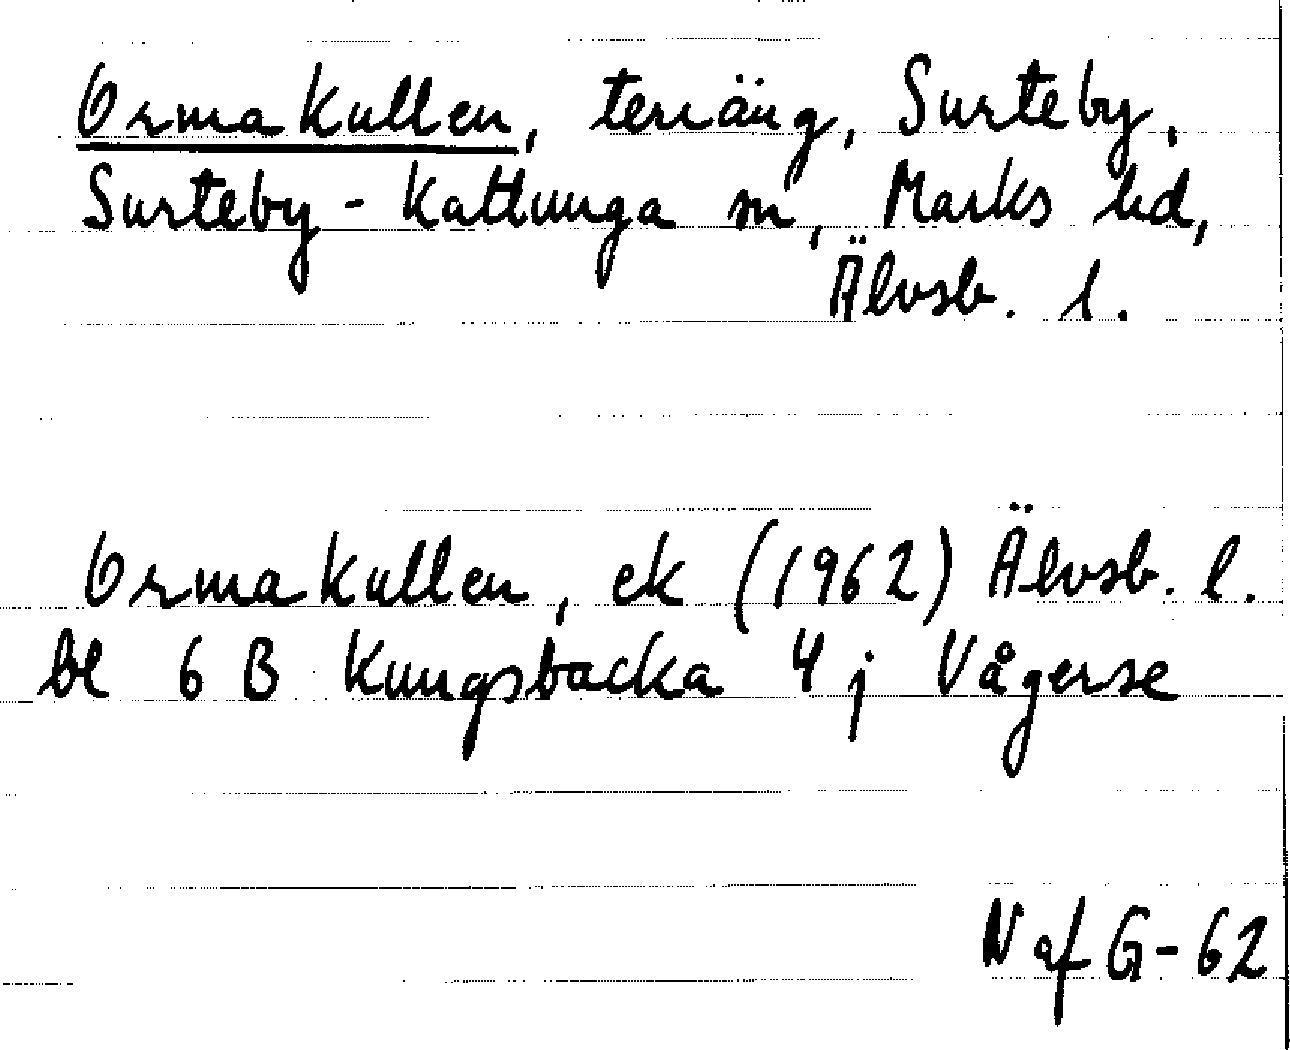 Ormakullen, terräng, Surteby,
Surteby-Kattunga sn, Marks hd,
Älvsb. l.
Ormakullen, ek (1962) Älvsb. l.
bl 6 B Kungsbacka 4 j Vågerse
N af G-62